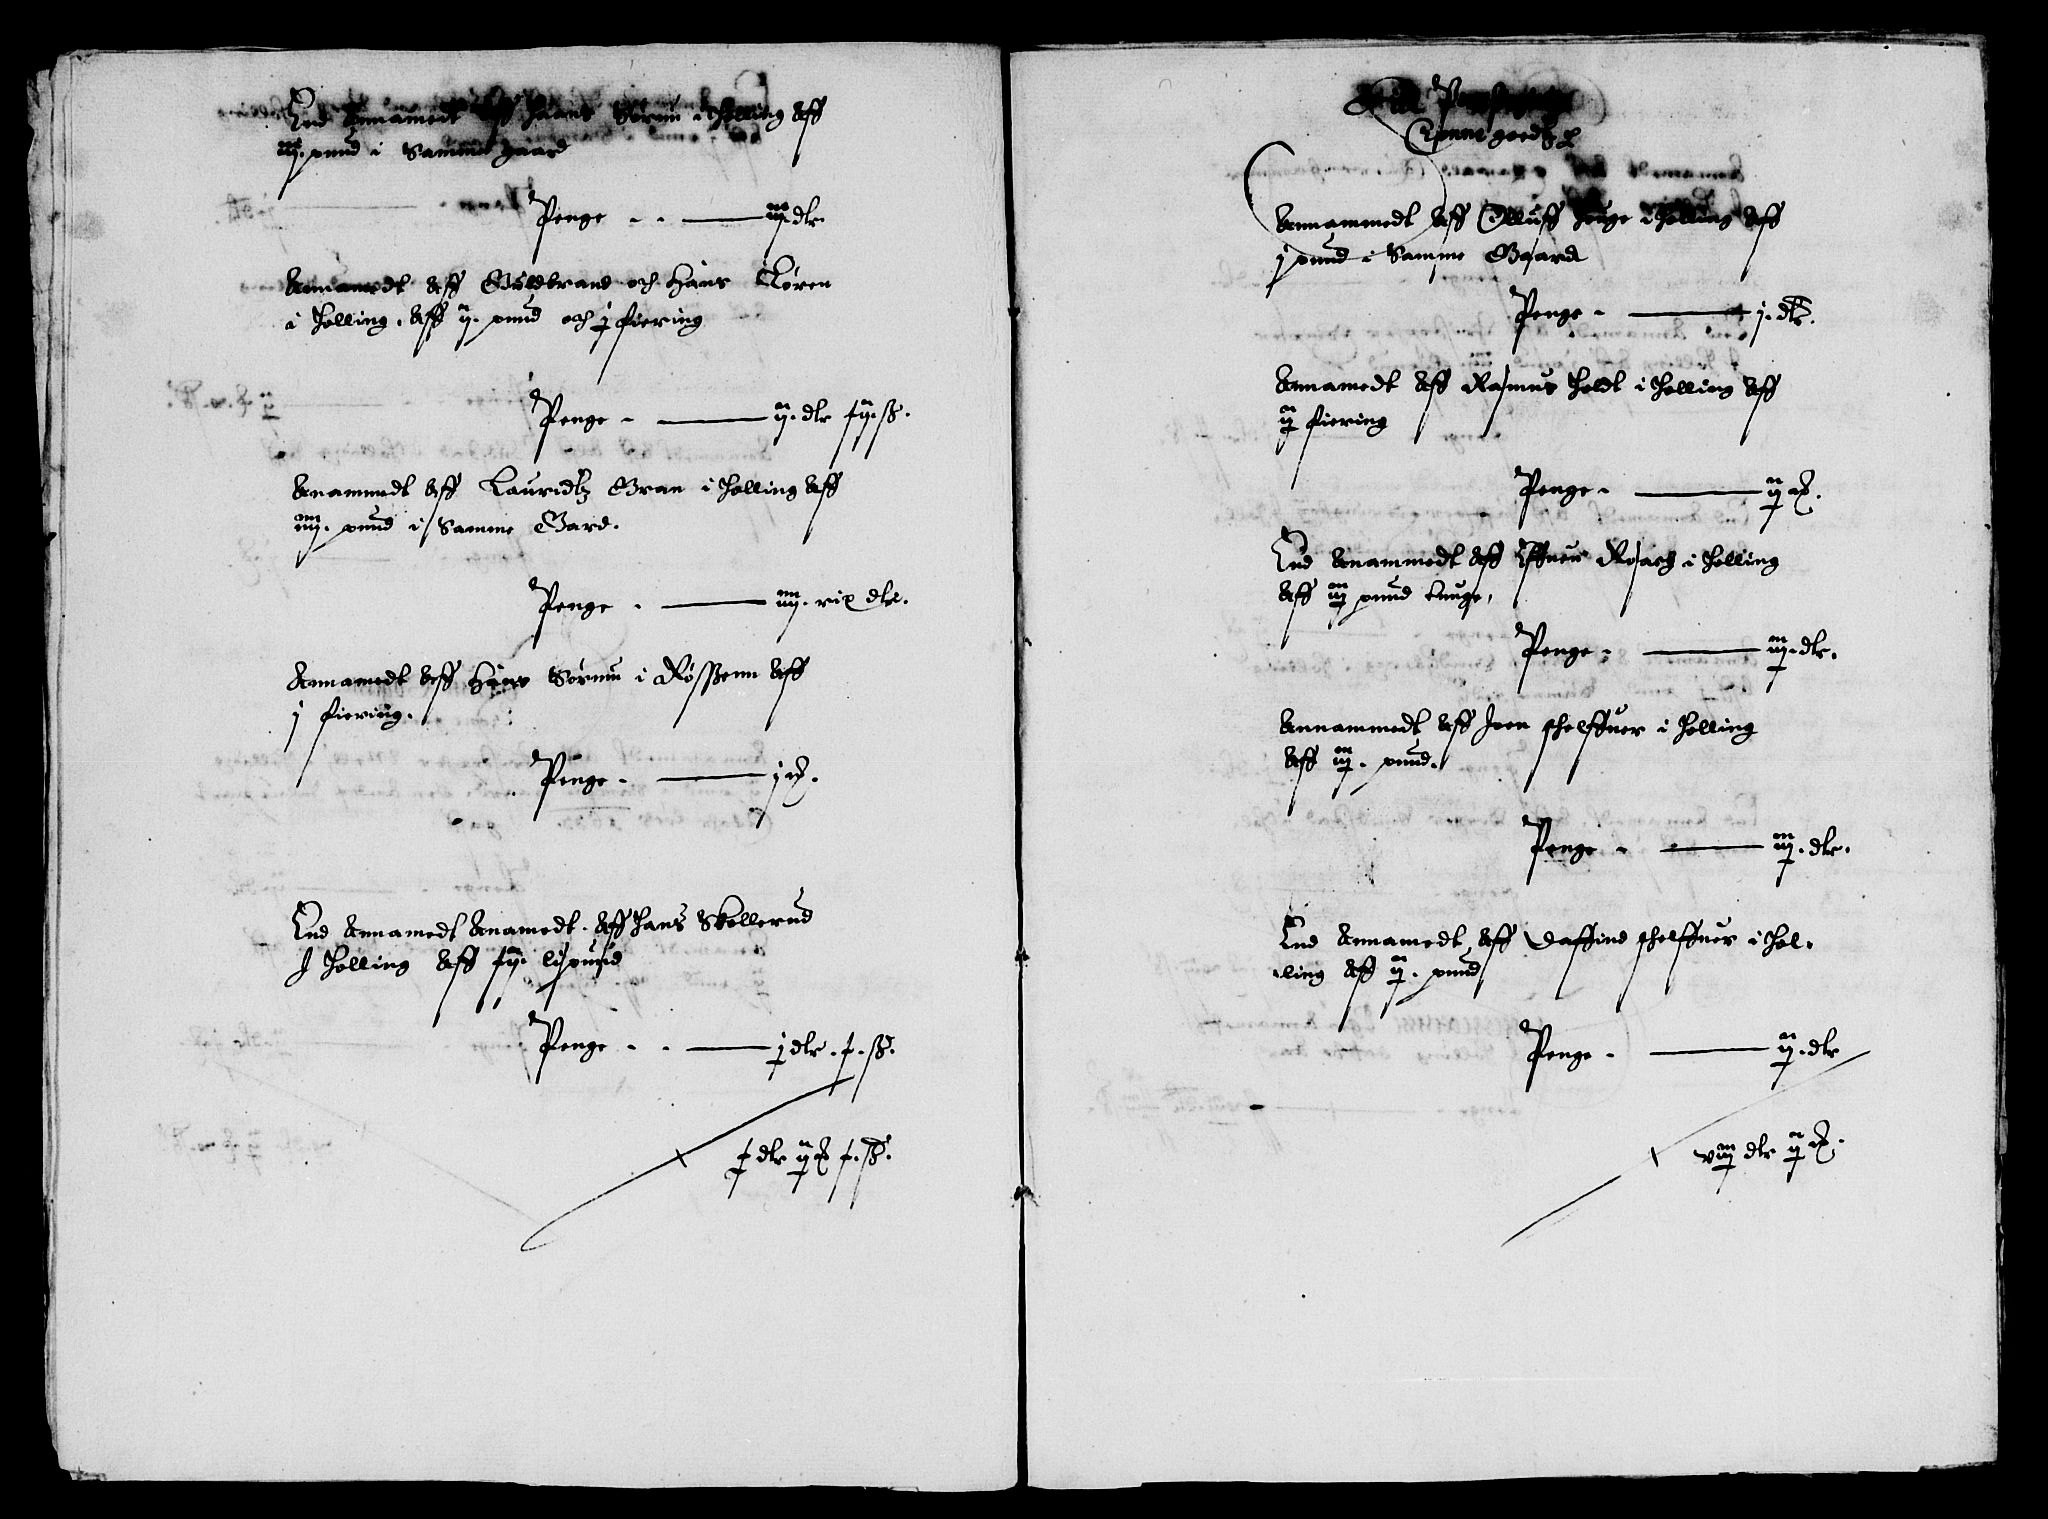 End Annamedt aff Hans Sørum i Holling aff
iij. pund i Samme gaard
Penge - - —— iij. dlr.
Annamedt aff Guldbrand och Hans Løren
i Holling. aff ij. pund och j fiering
Penge - —— ij. dlr ß.
Anammedt aff Lauridtz Gran i Holling aff
iiij. pund i Samme Gard.
Penge - —— iiij. rix dlr.
Annamedt aff Hans Sørum i aff
j fiering.
Penge - —— j
End Annamedt Anamedt. aff Hans Skellerud
I Holling aff lispund
Penge - - —— j dlr. ß.
dlr ij ß.
goedtz
Annammedt aff Olluff Houge i Holling aff
j pund i Samme Gaard
Penge - —— j. dlr.
Annamedt aff Rasmus Holdt i Holling aff
ij fiering
Penge - —— ij
End Anammedt aff i Holling
aff iij pund tunge,
Penge - —— iij. dlr.
Annammedt aff Joen i Holling
aff iij. pund.
Penge - —— iij. dlr.
End Annamedt aff Daffind i Hol-
ling aff ij. pund
Penge - —— ij. dlr
viij dlr ij